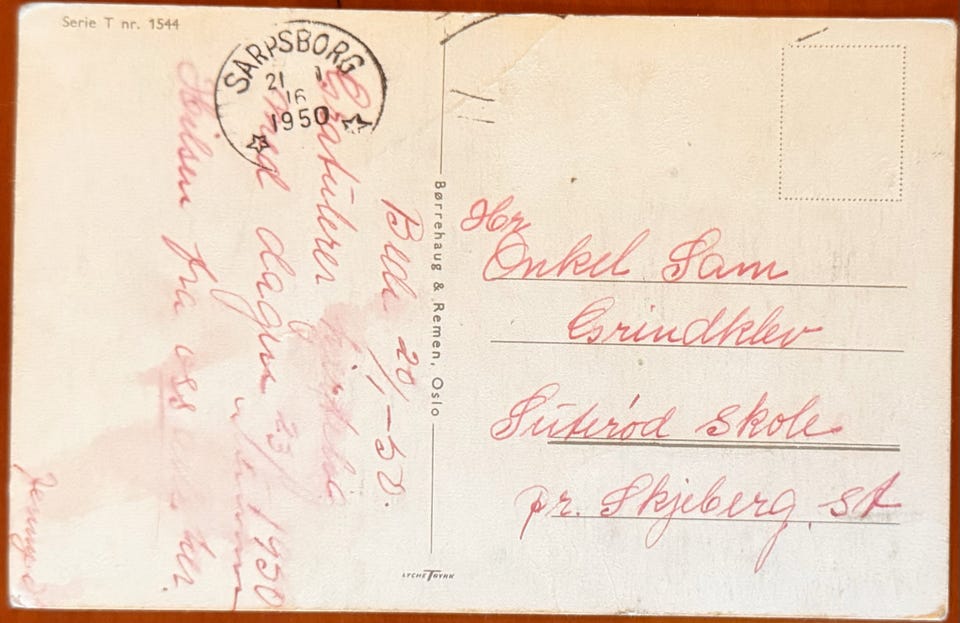 Serie T nr. 1544
SARPSBORG
21 1
16
1950
Bede 20/1-50.
Gratulerer hjertelig
med dagen 23/1 1950
Hilsen fra oss her.
Børrehaug & Remen, Oslo
Hr
Onkel Sam
Grindklev
Suterød Skole
pr. Skjeberg. st
LYCHE TRYKK